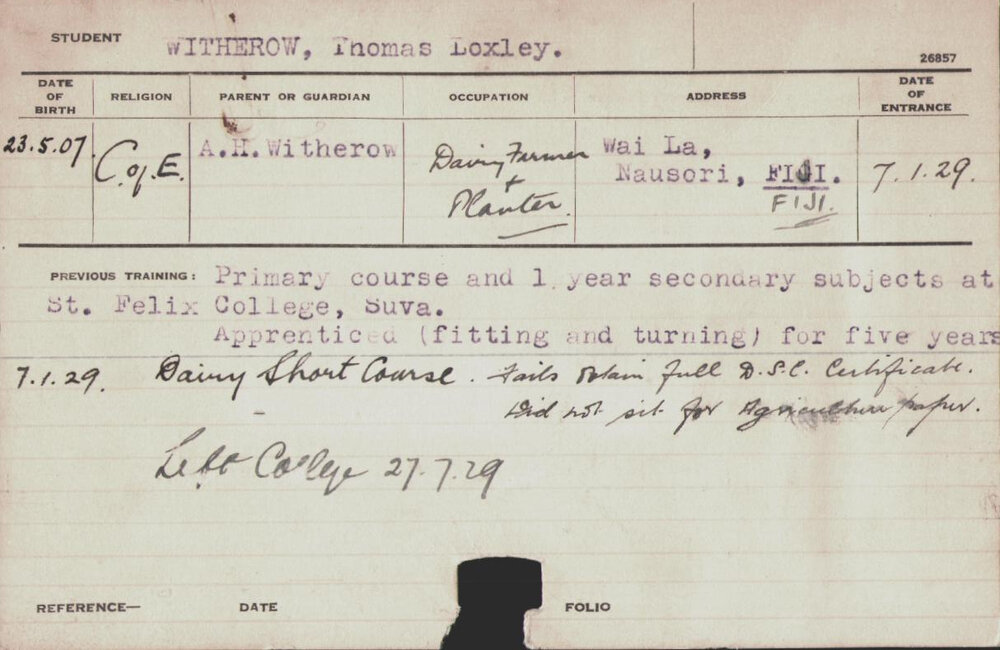 STUDENT WITHEROW, Thomas Loxley.
26857
DATE OF BIRTH RELIGION PARENT OR GUARDIAN OCCUPATION ADDRESS DATE OF ENTRANCE
23.5.07 C. of E. A.H. Witherow Dairy Farmer + Planter. Wai La, 7.1.29.
Nausori, FIJI.
FIJI.
PREVIOUS TRAINING: Primary course and 1 year secondary subjects at
St. Felix College, Suva.
Apprenticed (fitting and turning) for five years
7.1.29. Dairy Short Course. Fails obtain full D.S.C. Certificate.
Did not sit for Agriculture paper.
Left College 27.7.29
REFERENCE— DATE FOLIO